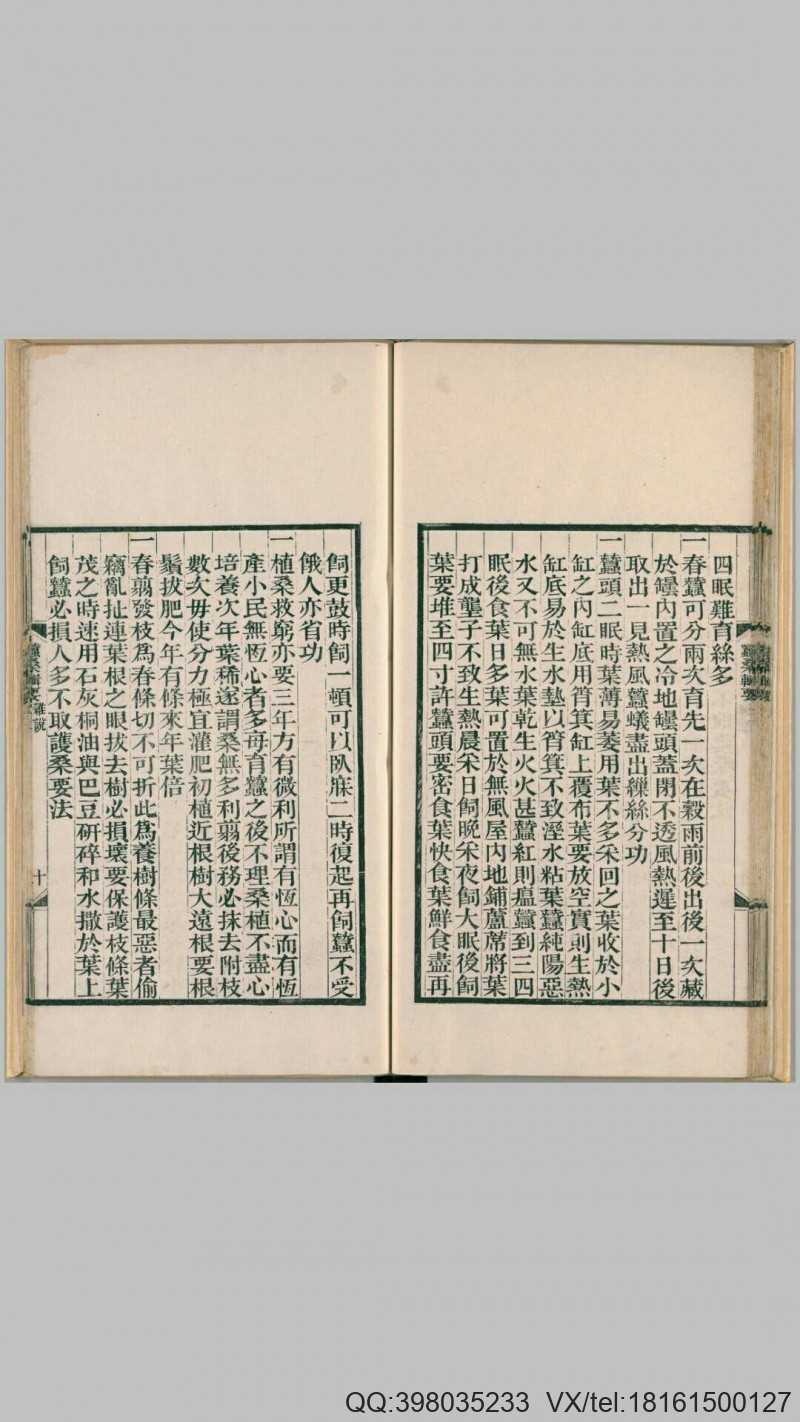 四眠難育絲多
一春蠶可分兩次育先一次在穀雨前後出後一次藏
於罎內置之冷地罎頭蓋閉不透風熱遲至十日後
取出一見熱風蠶蟻盡出繅絲分功
一蠶頭二眠時葉薄易萎用葉不多采回之葉收於小
缸之內缸底用筲箕缸上覆布葉要放空實則生熱
缸底易於生水墊以筲箕不致溼水粘葉蠶純陽惡
水又不可無水葉乾生火火甚蠶紅則瘟蠶到三四
眠後食葉日多葉可置於無風屋內地鋪蘆蓆將葉
打成壟子不致生熱晨采日飼晚采夜飼大眠後飼
葉要堆至四寸許蠶頭要密食葉快食葉鮮食盡再
飼更鼓時飼一頓可以臥寐二時復起再飼蠶不受
餓人亦省功
一植桑救窮亦要三年方有微利所謂有恆心而有恆
產小民無恆心者多每育蠶之後不理桑植不盡心
培養次年葉稀遂謂桑無多利翦後務必抹去附枝
數次毋使分力極宜灌肥初植近根樹大遠根要根
鬚拔肥今年有條來年葉倍
一春翦發枝爲春條切不可折此爲養樹條最惡者偷
竊亂扯連葉根之眼拔去樹必損壞要保護枝條葉
茂之時速用石灰桐油與巴豆研碎和水撒於葉上
飼蠶必損人多不取護桑要法
蠶桑輯要 雜說
十
QQ:398035233 VX/tel:18161500127